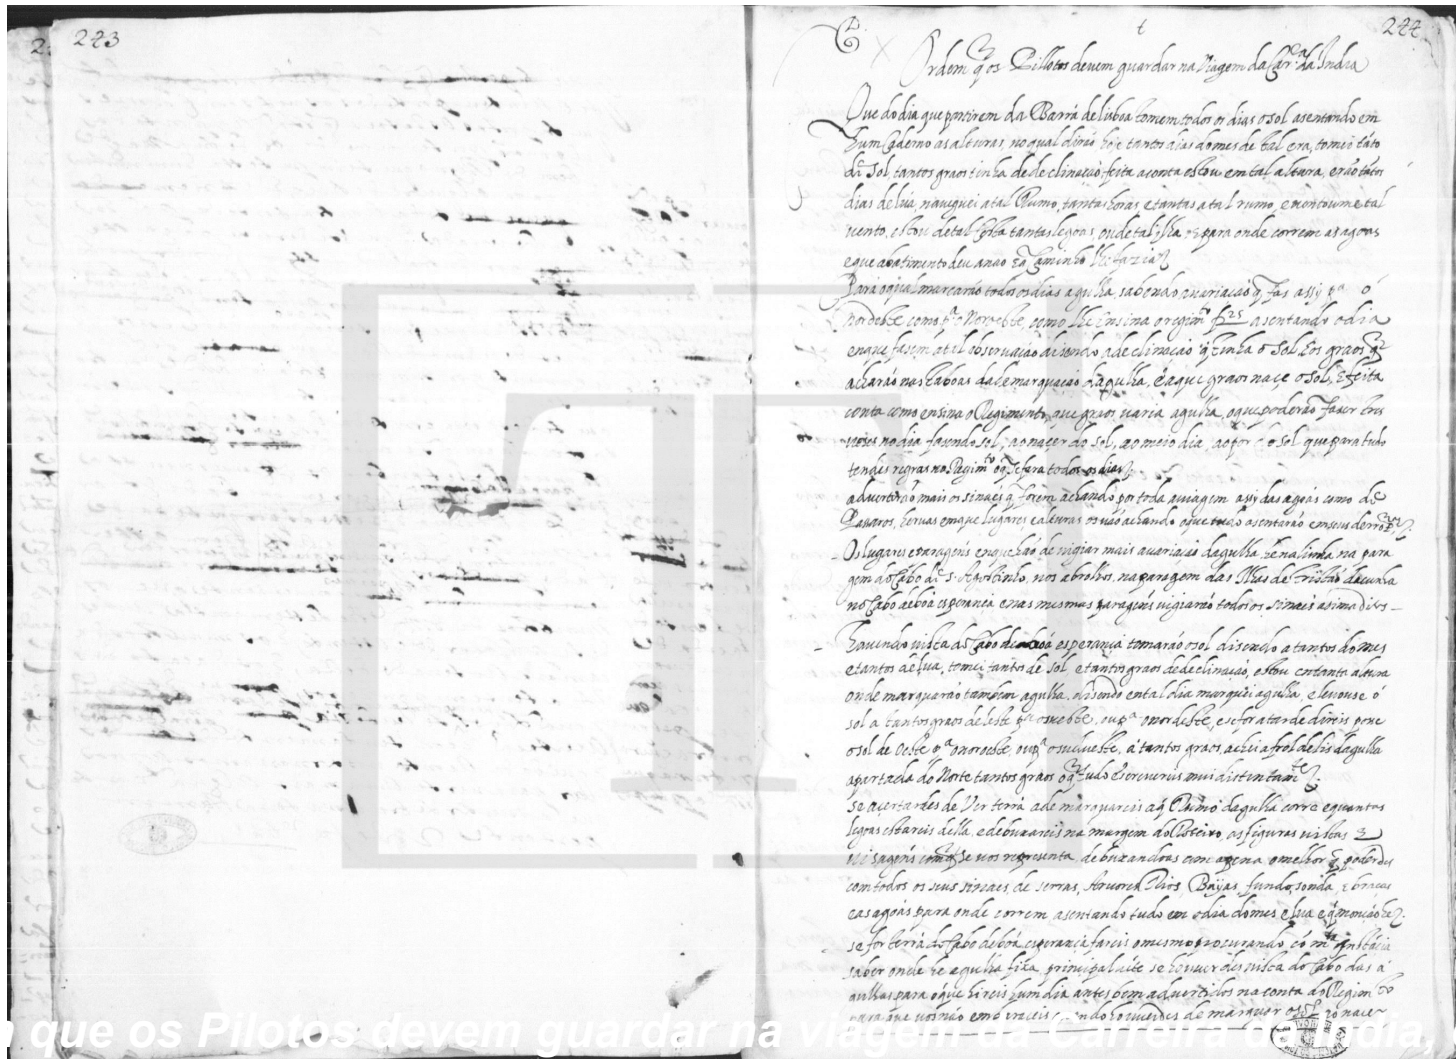 243
244
Ordem q os Pillotos devem guardar na Viagem da Carr.ª da India
Que do dia que partirem da Barra de lisboa tomem todos os dias o sol asentando em
hum Caderno as alturas, no qual dirão hoje tantos dias do mes de tal era, tomei tāto
de Sol, tantos graos tinha de declinação feita a conta estou em tal altura, erão tātos
dias de lua, naveguei a tal Rumo, tantas horas, e tantas a tal rumo, tal
vento, estou de tal Costa tantas legoas, ou de tal ilha para onde correm as agoas
e que abatimento deu a nao Caminho lhe fazia
Para o qual marcarão todos os dias agulha, sabendo a variacão q fas assy pª o
nordeste como pª o Noroeste, como lhe Ensina o regimto asentando o dia
em que fasem a tal observação disendo a declinação q tinha o Sol, os graos q
acharão nas taboas da demarquação dagulha, e a que graos naçe o Sol, E feita
conta como ensina o Regimento, que graos varia agulha, o que poderão faser tres
vezes no dia fasendo sol, ao naçer do sol, ao meio dia, ao por do sol que para tudo
tendes regras no Regimto o q se fara todos os dias
advertirão mais os sinaes q forem achando por toda a viagem assy das agoas como de
Passaros, hervas em que lugares e alturas os vão achando o que tudo asentarão em seus derro
Os lugares e paragens em que hão de vigiar mais a variação dagulha, he na linha, na para
gem do Cabo de S. Agostinho, nos abrolhos, na paragem das Ilhas de Tristão dacunha
no Cabo de boa esperança e nas mesmas paragens vigiarão todos os sinais asima ditos
havendo vista do Cabo de boa esperança tomarão o sol disendo a tantos do mes
e tantos de lua, tomei tantos de sol, e tantos graos de declinação, estou em tanta altura
onde marquarão tambem agulha, disendo em tal dia marquei agulha, e levouse o
sol a tantos graos de leste pª o sueste, ou pª o nordeste, e se for a tarde direis pose
o sol de Oeste pª o noroeste, ou pª o sudueste, a tantos graos, achei a frol de lis dagulha
apartada do Norte tantos graos o q tudo escrevereis mui distintamte
Se açertardes de Ver terra a demarquareis a q Rumo dagulha corre e quantas
legoas estareis della, e debuxareis na margem do Roteiro, as figuras vistas
visagens como se vos representa debuxandoas com a pena o melhor q poderdes
com todos os seus sinaes de serras, Arvores Rios, Bayas, fundo, sonda, e braças
e as agoas para onde correm asentando tudo em o dia do mes e lua e q monção he
se for terra do Cabo de boa esperança fareis o mesmo procurando com mta instacia
saber onde he agulha fixa, principalmte se houver des vista do Cabo das a
gulhas para o que hireis hum dia antes bem advertidos na conta do Regimto
para que vos não embaraceis quando houverdes de marquar o sol ao nacer
que os Pilotos devem guardar na viagem da Carreira da Índia,